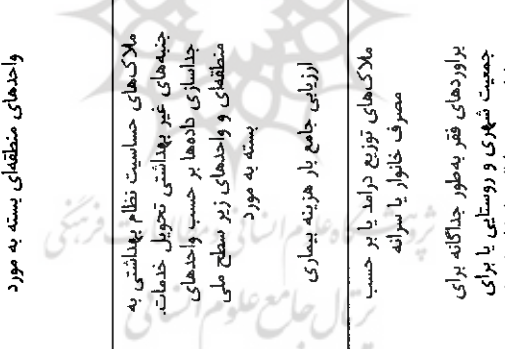 واحدهای منطقه‌ای بسته به مورد
ملاک‌های حساسیت نظام بهداشتی به
جنبه‌های غیر بهداشتی تحویل خدمات.
جداسازی داده‌ها بر حسب واحدهای
منطقه‌ای و واحدهای زیر سطح ملی
بسته به مورد
ارزیابی جامع بار هزینه بیماری
ملاک‌های توزیع درامد یا بر حسب
مصرف خانوار یا سرانه
براوردهای فقر به‌طور جداگانه برای
جمعیت شهری و روستایی یا برای
پژوهشگاه علوم انسانی و مطالعات فرهنگی
پرتال جامع علوم انسانی